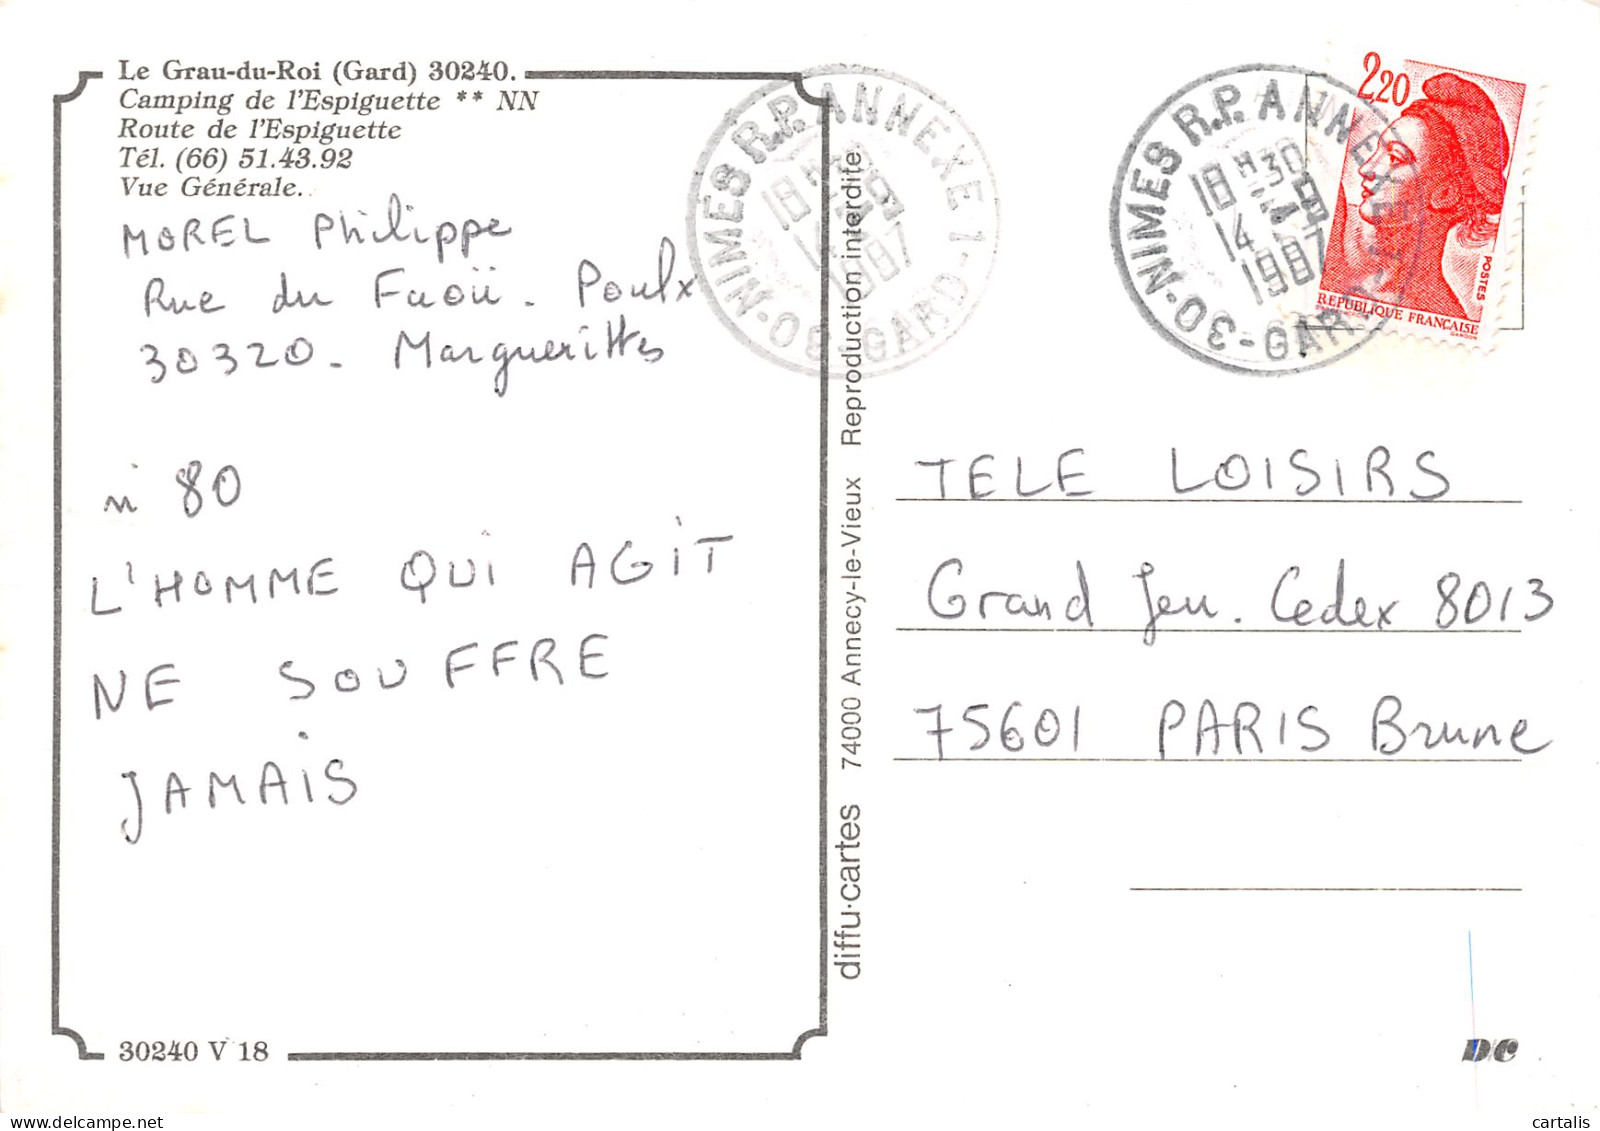 Le Grau-du-Roi (Gard) 30240.
Camping de l'Espiguette ** NN
Route de l'Espiguette
Tél. (66) 51.43.92
Vue Générale.
MOREL Philippe
Rue du Faoü. Poulx
30320 - Marguerittes
n° 80
L'HOMME QUI AGIT
NE SOUFFRE
JAMAIS
30240 V 18
diffu·cartes 74000 Annecy-le-Vieux Reproduction interdite
30-NIMES R.P. ANNEXE 1-GARD
18H30
14
1987
30-NIMES R.P. ANNEXE 1-GARD
18H30
14
1987
2,20
POSTES
REPUBLIQUE FRANÇAISE
GANDON
TELE LOISIRS
Grand Jeu. Cedex 8013
75601 PARIS Brune
DC
cartalis